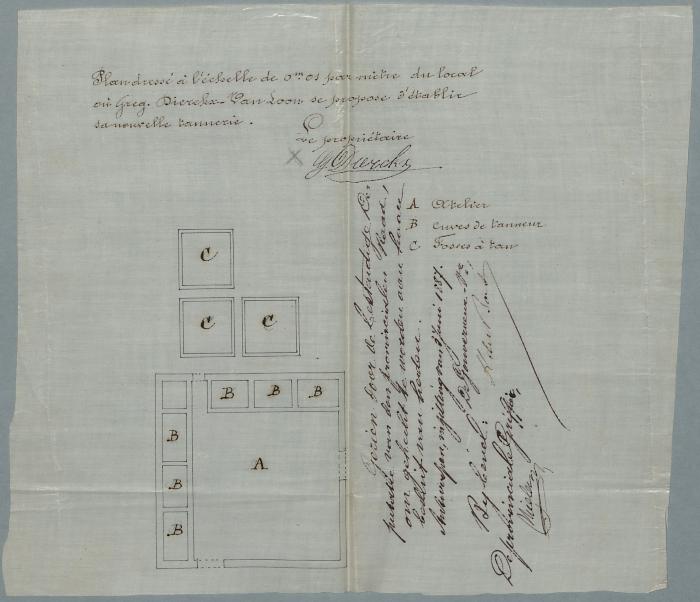 Plan dressé à l'échelle de 0m01 par mètre du local
où Greg. Dierckx-Van Loon se propose d'établir
sa nouvelle tannerie.
Le propriétaire
G Dierckx
A Atelier
B cuves de tanneur
C Fosses à tan
C
C C
B B B
B
A
B
B
Gezien door de Bestendige De-
putatie van den provincialen Raad,
om gehecht te worden aan haar
besluit van heden.
Antwerpen, zitting van 3 Juni 1887.
De Gouverneur Vr
Bij bevel:
De provinciale Griffier,